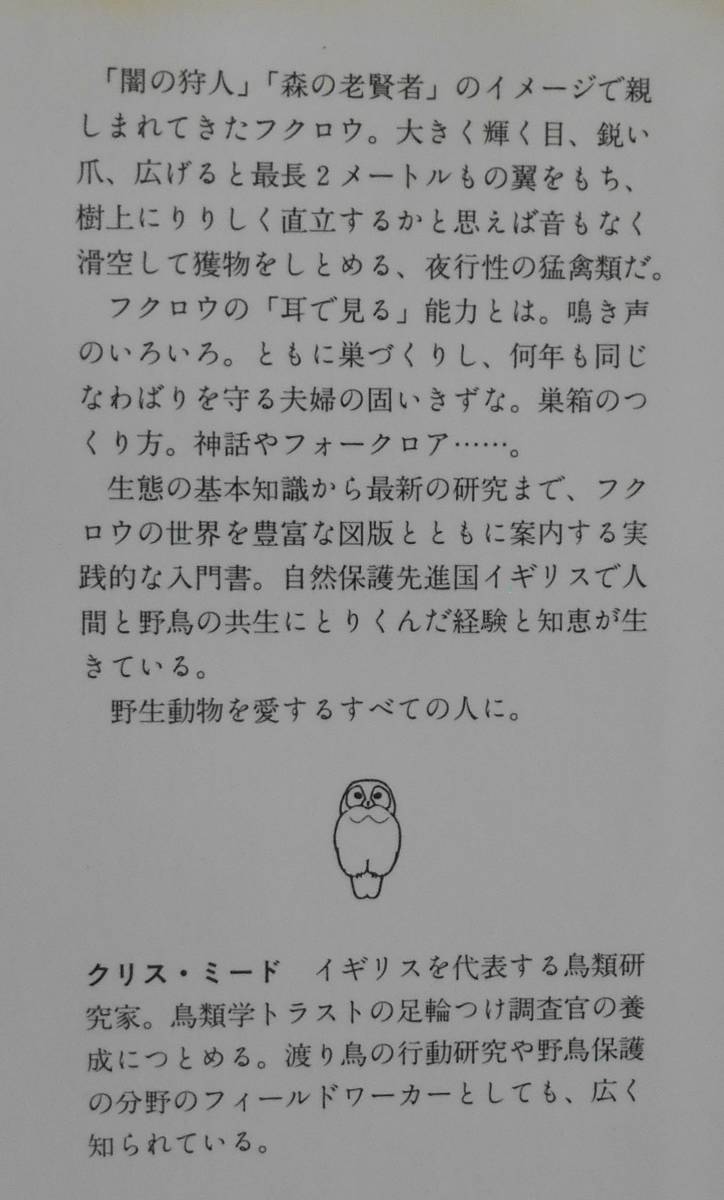 「闇の狩人」「森の老賢者」のイメージで親
しまれてきたフクロウ。大きく輝く目、鋭い
爪、広げると最長2メートルもの翼をもち、
樹上にりりしく直立するかと思えば音もなく
滑空して獲物をしとめる、夜行性の猛禽類だ。
フクロウの「耳で見る」能力とは。鳴き声
のいろいろ。ともに巣づくりし、何年も同じ
なわばりを守る夫婦の固いきずな。巣箱のつ
くり方。神話やフォークロア……。
生態の基本知識から最新の研究まで、フク
ロウの世界を豊富な図版とともに案内する実
践的な入門書。自然保護先進国イギリスで人
間と野鳥の共生にとりくんだ経験と知恵が生
きている。
野生動物を愛するすべての人に。
クリス・ミード　イギリスを代表する鳥類研
究家。鳥類学トラストの足輪つけ調査官の養
成につとめる。渡り鳥の行動研究や野鳥保護
の分野のフィールドワーカーとしても、広く
知られている。